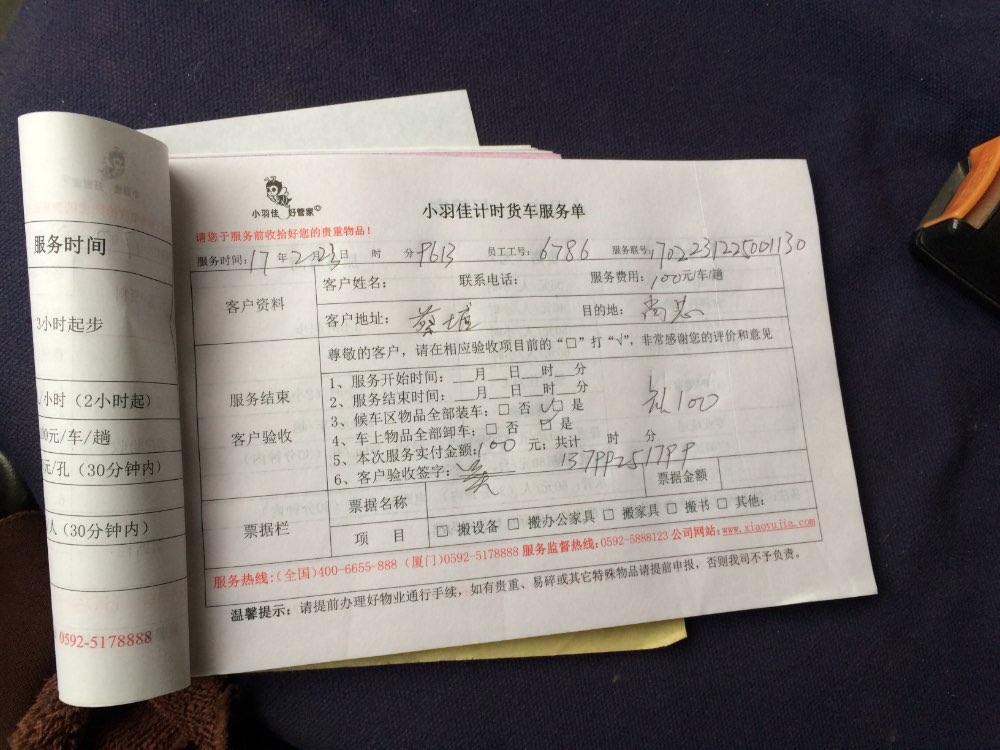 小羽佳 好管家
小羽佳计时货车服务单
请您于服务前收拾好您的贵重物品!
服务时间: 17 年 2 月 23 日 时 分 员工工号: 6786 服务联号: 1702231225001130
客户资料
客户姓名: 联系电话: 服务费用: 100元/车/趟
客户地址: 蔡塘 目的地:
服务结束
客户验收
尊敬的客户,请在相应验收项目前的“□”打“√”,非常感谢您的评价和意见
1、服务开始时间:___月___日___时___分
2、服务结束时间:___月___日___时___分
3、候车区物品全部装车:□ 否 □ 是
4、车上物品全部卸车:□ 否 □ 是
5、本次服务实付金额: 100 元; 共计 时 分
6、客户验收签字:
100
票据金额
票据栏
票据名称
项 目
□ 搬设备 □ 搬办公家具 □ 搬家具 □ 搬书 □ 其他:
服务热线:(全国)400-6655-888 (厦门)0592-5178888 服务监督热线:0592-5888123 公司网站:www.xiaoyujia.com
温馨提示:请提前办理好物业通行手续,如有贵重、易碎或其它特殊物品请提前申报,否则我司不予负责。
服务时间
3小时起步
/小时(2小时起)
00元/车/趟
元/孔(30分钟内)
人(30分钟内)
0592-5178888